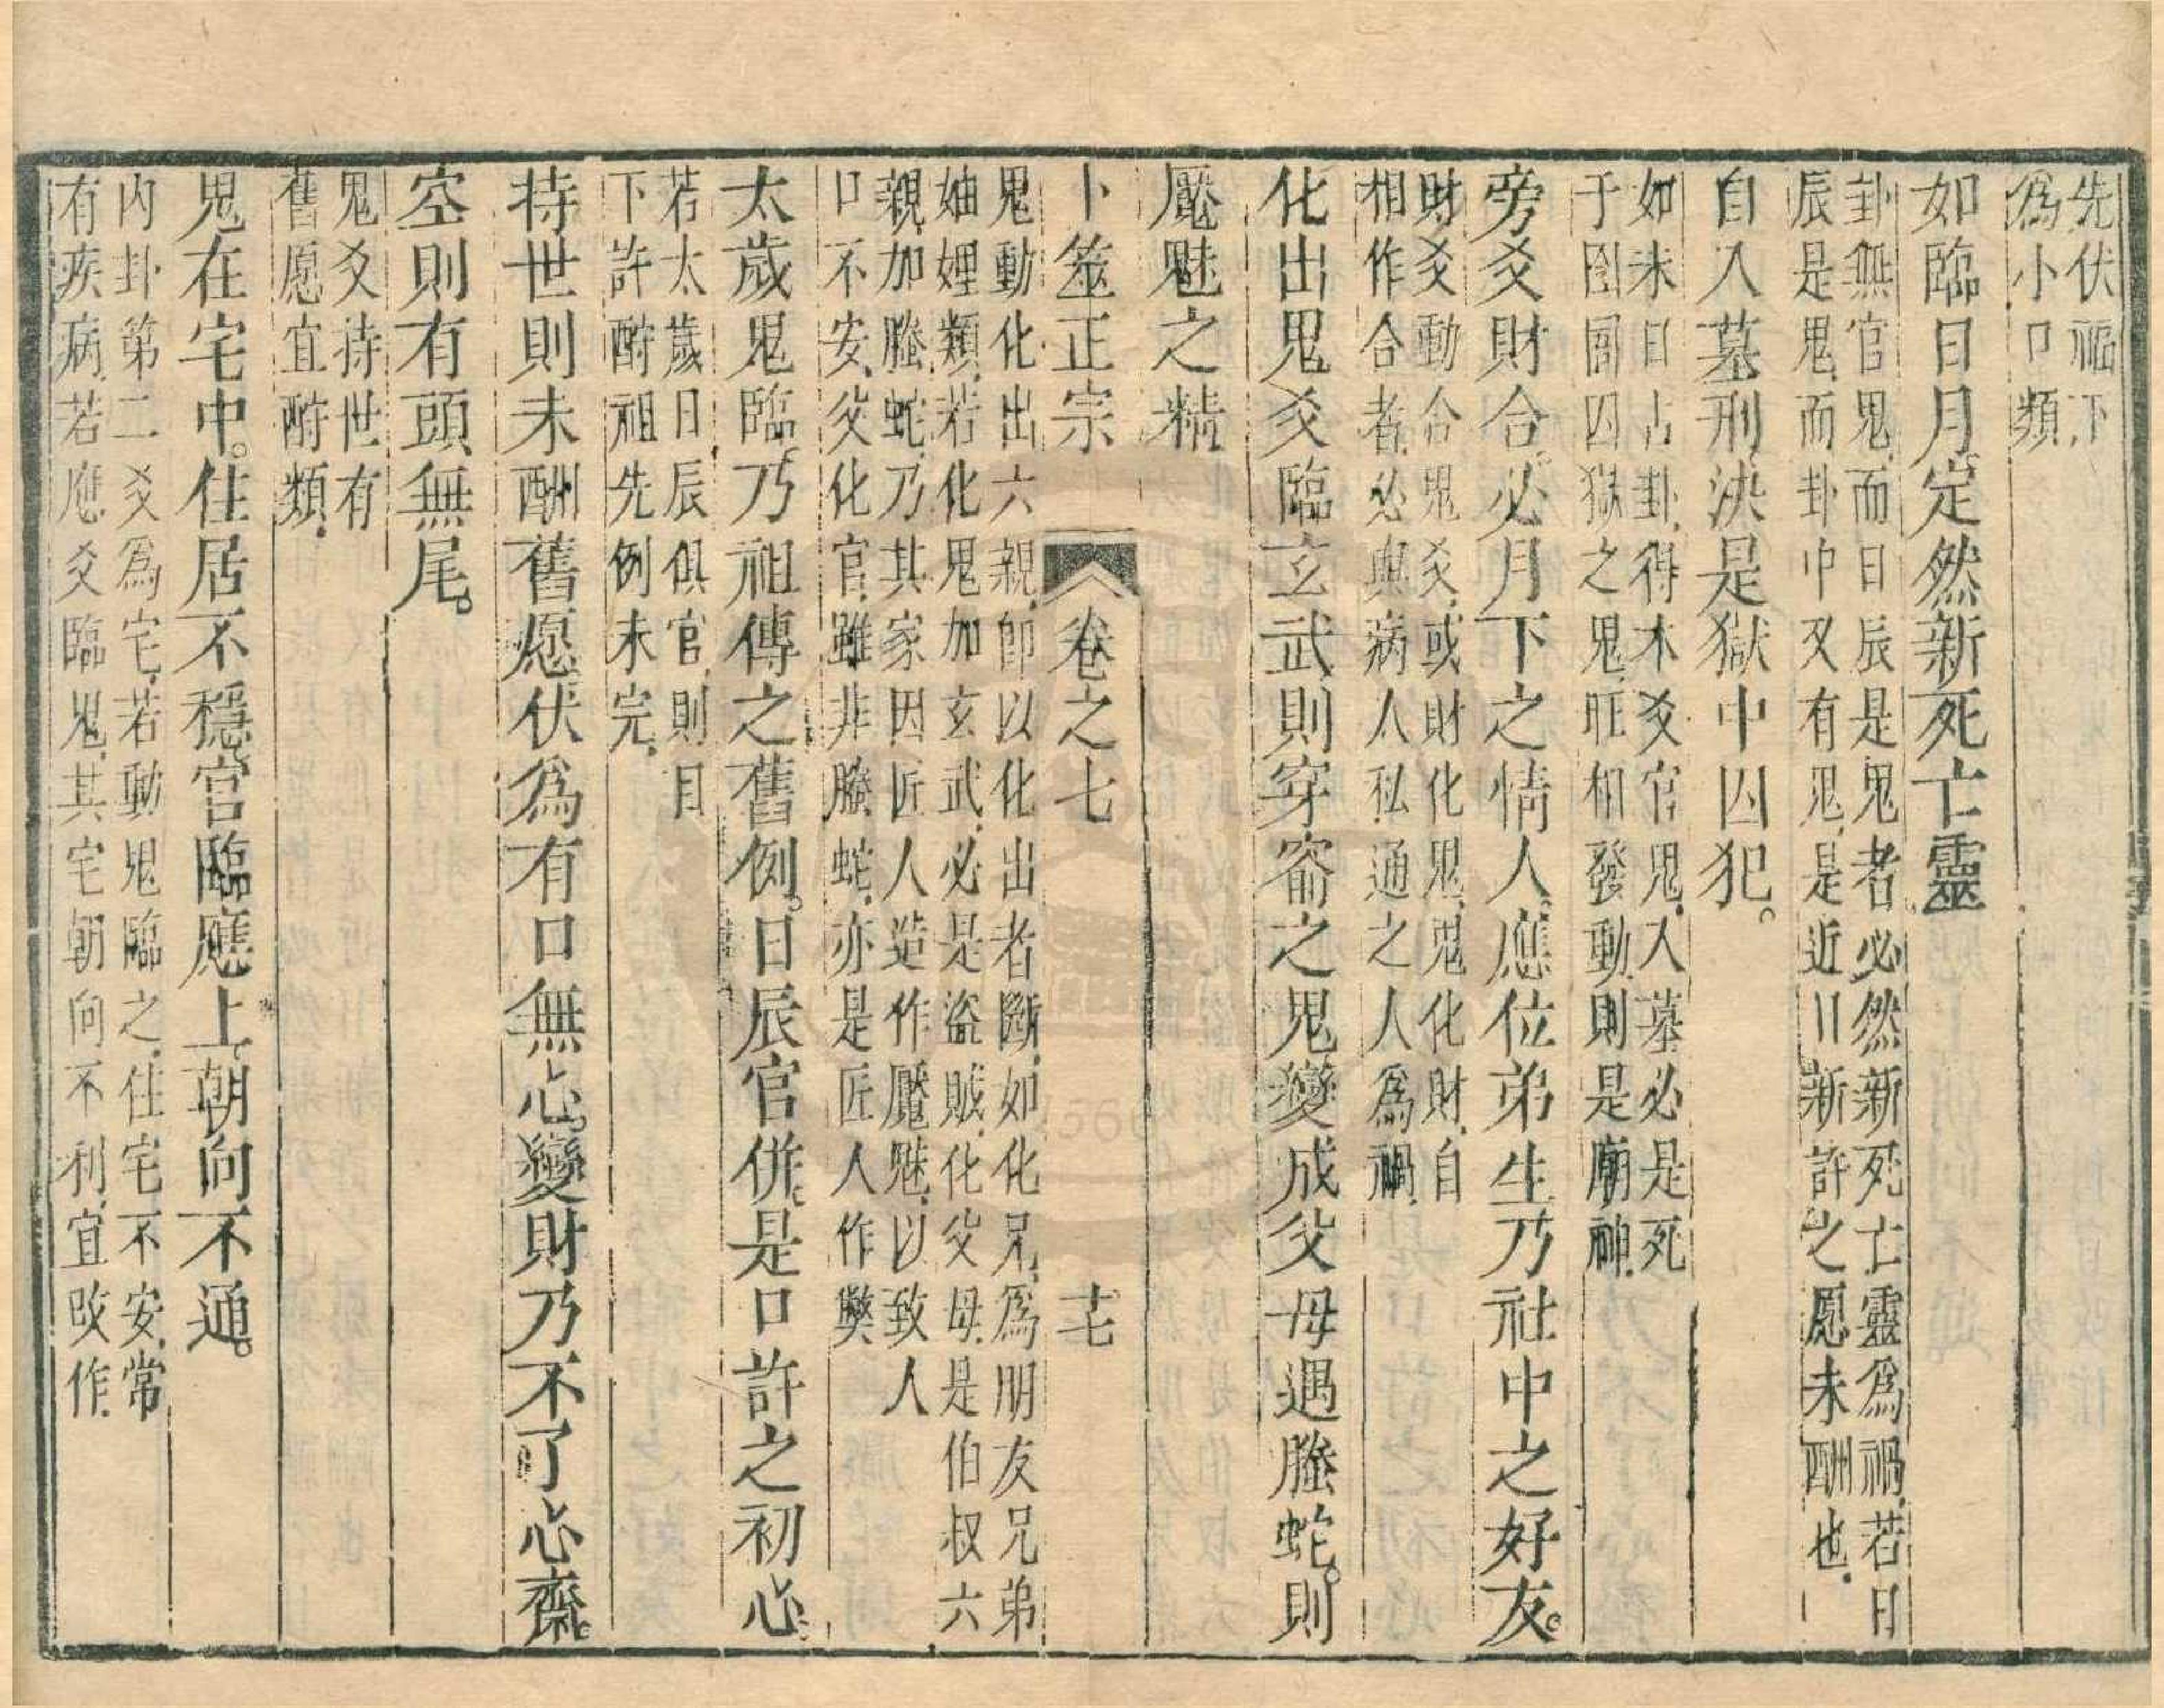 先伏禍下
為小口類
如臨日月定然新死亡靈
卦無官鬼而日辰是鬼者必然新死亡靈為禍若日
辰是鬼而卦中又有鬼是近日新許之愿未酬也
自入墓刑決是獄中囚犯。
如未日占卦得木爻官鬼入墓必是死
于囹圄囚獄之鬼旺相發動則是廟神
旁爻財合必月下之情人應位弟生乃社中之好友。
財爻動合鬼爻或財化鬼鬼化財自
相作合者必與病人私通之人為禍
化出鬼爻臨玄武則穿窬之鬼變成父母遇螣蛇。則
魘魅之精
卜筮正宗 卷之七 十七
鬼動化出六親即以化出者斷如化兄為朋友兄弟
妯娌類若化鬼加玄武必是盜賊化父母是伯叔六
親加螣蛇乃其家因匠人造作魘魅以致人
口不安父化官雖非螣蛇亦是匠人作獘
太歲鬼臨乃祖傳之舊例。日辰官併是口許之初心
若太歲日辰俱官則目
下許酧祖先例未完
持世則未酬舊愿伏為有口無心。變財乃不了心齋。
空則有頭無尾。
鬼爻持世有
舊愿宜酧類
鬼在宅中。住居不穩官臨應上朝向不通。
內卦第二爻為宅若動鬼臨之住宅不安常
有疾病若應爻臨鬼其宅朝向不利宜改作